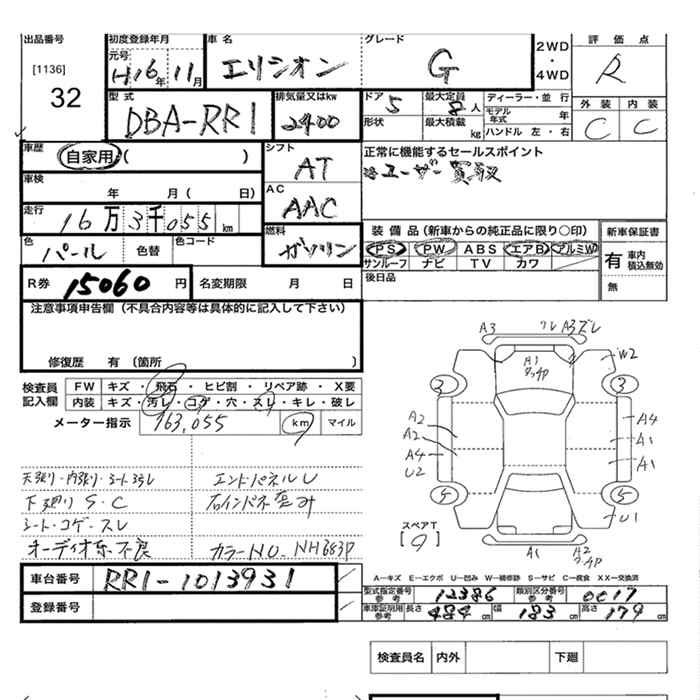 出品番号 初度登録年月 車名 グレード 評価点
[1136] 元号 2WD
32 H16年11月 エリシオン G ・ R
4WD
型式 排気量又はkw ドア 5 最大定員 8人 ディーラー・並行 外装 内装
DBA-RR1 2400 形状 最大積載 kg モデル年式 年 C C
ハンドル 左・右
車歴 自家用 ( ) シフト 正常に機能するセールスポイント
AT ※ユーザー買取
車検 年 月( 日) AC
AAC
走行 16万3千055km 燃料 装備品(新車からの純正品に限り○印) 新車保証書
色 パール 色替 色コード ガソリン PS PW ABS エアB アルミW 有 車内積込無効
サンルーフ ナビ TV カワ
R券 15060円 名変期限 月 日 後日品 無
注意事項申告欄(不具合内容等は具体的に記入して下さい)
修復歴 有(箇所 )
検査員記入欄 FW キズ・飛石・ヒビ割・リペア跡・X要
内装 キズ・汚レ・コゲ・穴・スレ・キレ・破レ
メーター指示 163,055 km マイル
天張り・内張り・シートヨゴレ エンドパネルU
下廻りS・C 右インパネ歪み
シート・コゲ・スレ
オーディオ不良 カラーNO. NH683P
A3 ワレ A3ズレ
A1 タッチP W2
3 3
A2 A4
A2 A1
A4 A1
U2
4 5
U1
スペアT
[9]
A1 A2 タッチP
車台番号 RR1-1013931
登録番号
A−キズ E−エクボ U−凹み W−補修跡 S−サビ C−腐食 XX−交換済
型式指定番号参考 12386 類別区分番号参考 0017
車庫証明用参考 長さ 484cm 幅 183cm 高さ 179cm
検査員名 内外 下廻